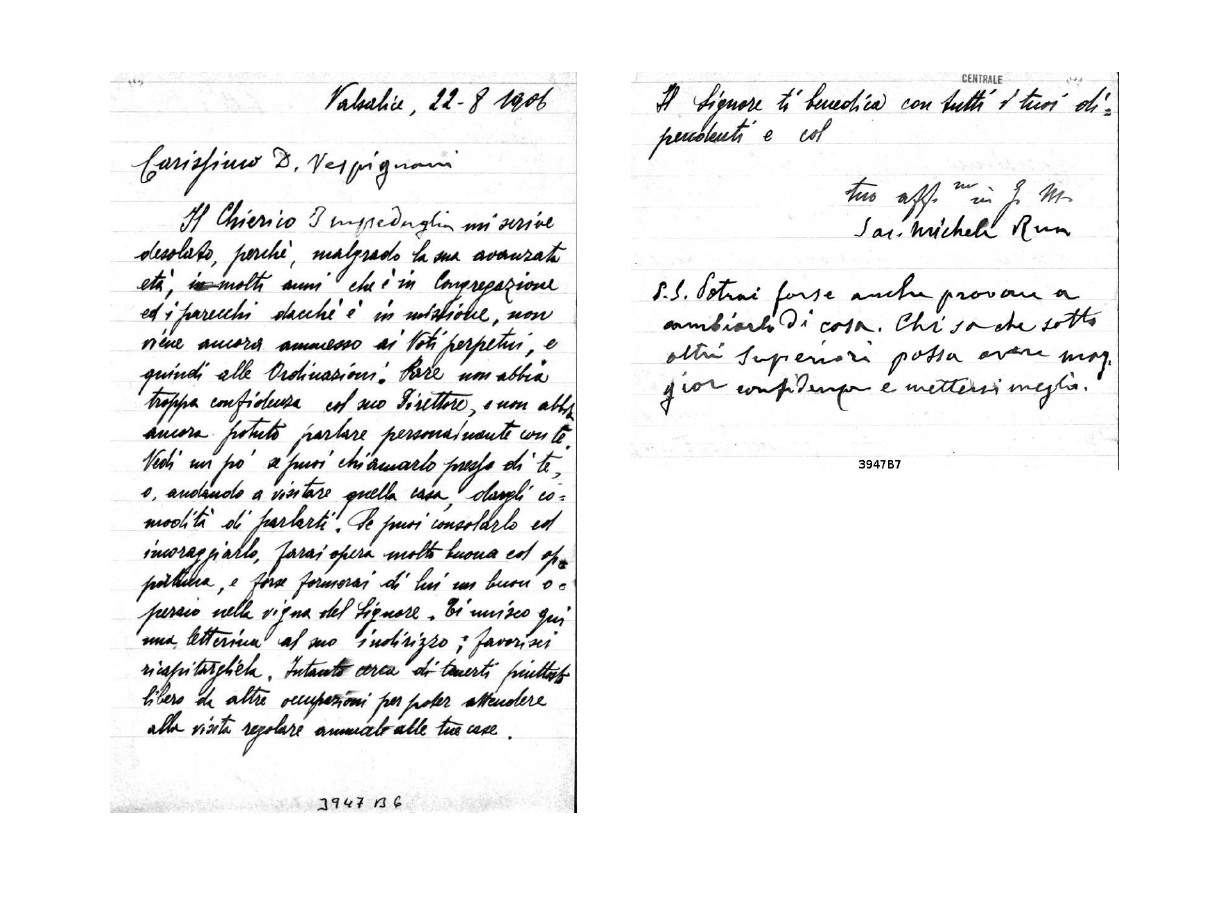 Valsalice, 22-8 1906
Carissimo D. Vespignani
Il Chierico Impeduglia mi scrive
desolato, perchè, malgrado la sua avanzata
età, i molti anni che è in Congregazione
ed i parecchi dacchè è in missione, non
viene ancora ammesso ai Voti perpetui, e
quindi alle Ordinazioni. Pare non abbia
troppa confidenza col suo Direttore, e non abbia
ancora potuto parlare personalmente con te.
Vedi un pò se puoi chiamarlo presso di te,
o, andando a visitare quella casa, dargli co=
modità di parlarti. Se puoi consolarlo ed
incoraggiarlo, farai opera molto buona ed op=
portuna, e forse formerai di lui un buon o=
peraio nella vigna del Signore. Ti unisco qui
una letterina al suo indirizzo; favorisci
ricapitargliela. Intanto cerca di tenerti piuttosto
libero da altre occupazioni per poter attendere
alla visita regolare annuale alle tue case.
3947 B 6
CENTRALE
Il Signore ti benedica con tutti i tuoi di=
pendenti e col
tuo aff mo in G. M.
Sac. Michele Rua
P.S. Potrai forse anche provare a
cambiarlo di casa. Chi sa che sotto
altri Superiori possa avere mag.
gior confidenza e mettersi meglio.
3947B7